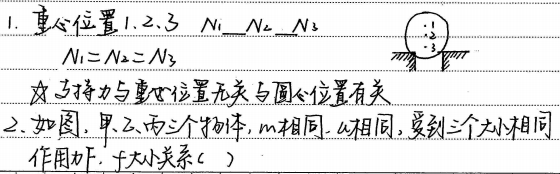 1. 重心位置1.2.3 N₁__N₂__N₃
.1
.2
.3
N₁=N₂=N₃
☆支持力与重心位置无关与圆心位置有关
2、如图,甲、乙、丙三个物体,m相同.u相同,受到三个大小相同
作用力F.f大小关系( )